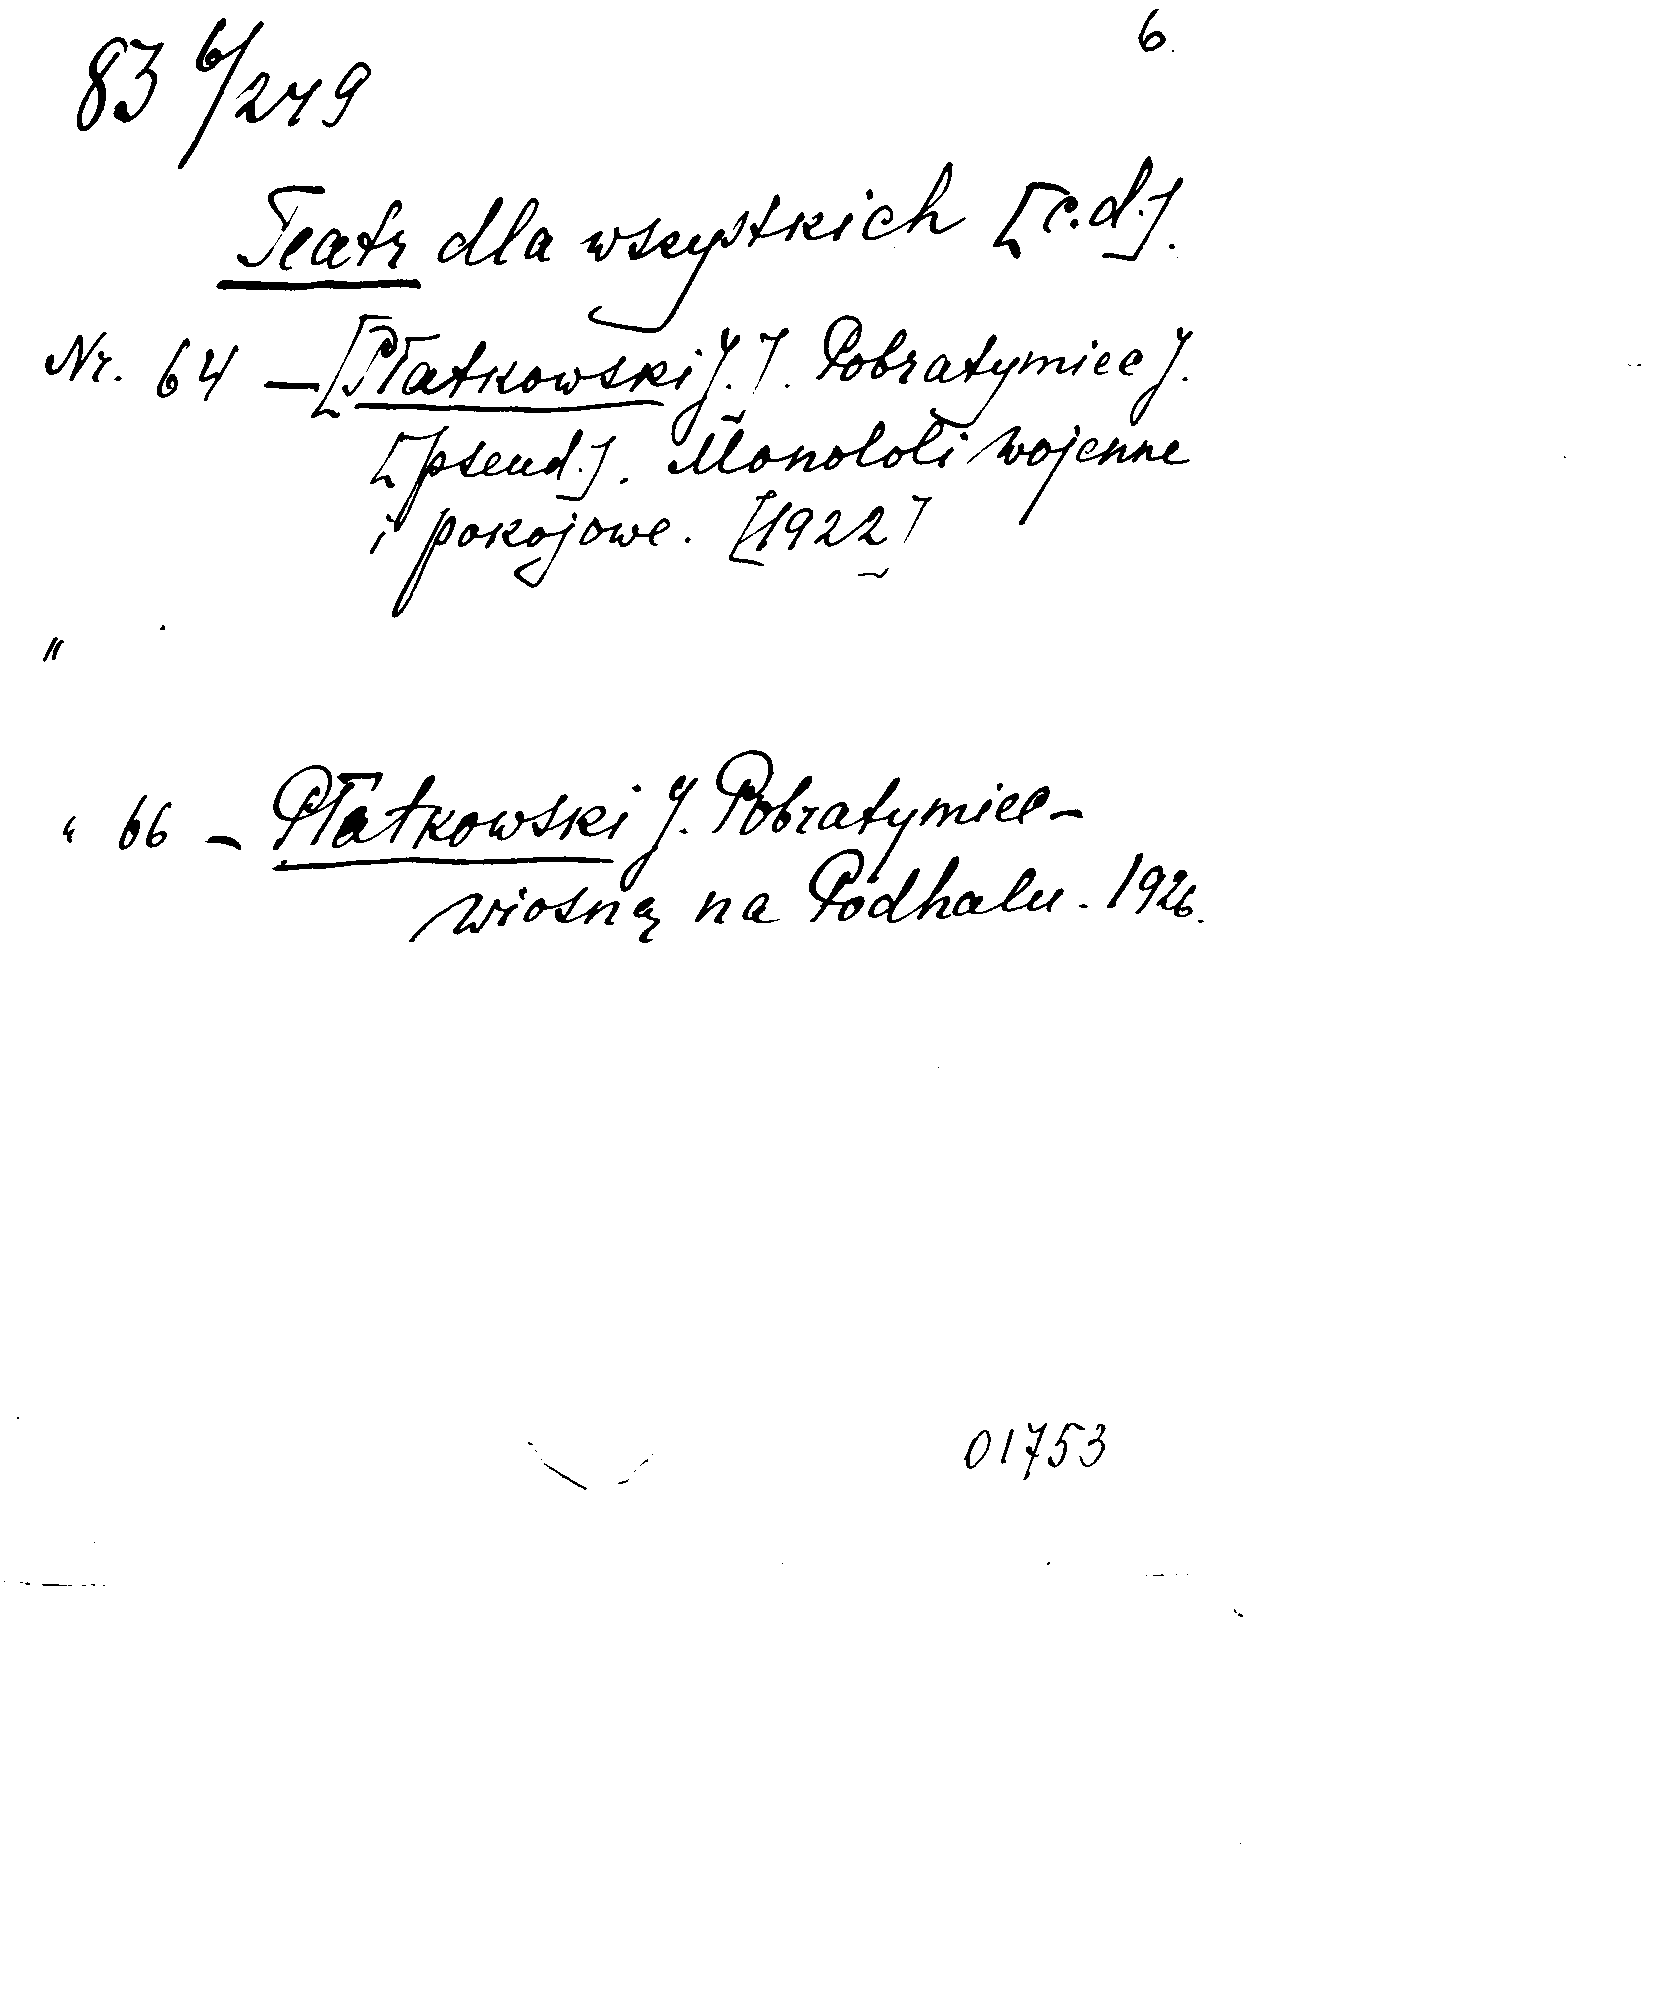 6.
83 6/249
Teatr dla wszystkich [c.d.].
Nr. 64 – [Płatkowski J.]. Pobratymiec J.
[pseud.]. Monololi wojenne
i pokojowe. [1922]
"
" 66 – Płatkowski J. Pobratymiec –
wiosną na Podhalu. 1926.
01753